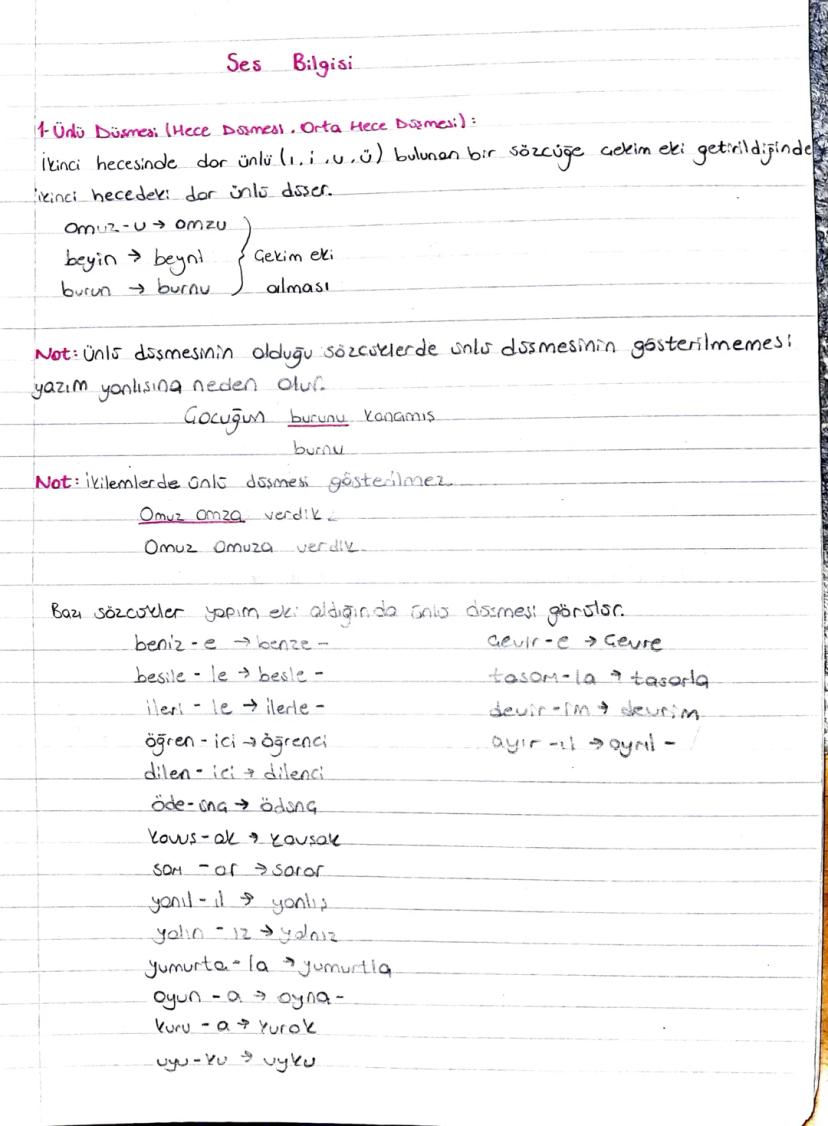 Ses Bilgisi
1-Ünlü Düşmesi (Hece Düşmesi, Orta Hece Düşmesi):
İkinci hecesinde dar ünlü (ı, i, u, ü) bulunan bir sözcüğe çekim eki getirildiğinde
ikinci hecedeki dar ünlü düşer.
omuz-u → omzu
beyin → beyni } çekim eki
burun → burnu } alması
Not: Ünlü düşmesinin olduğu sözcüklerde ünlü düşmesinin gösterilmemesi
yazım yanlışına neden olur.
Çocuğun burunu kanamış
burnu
Not: ikilemlerde ünlü düşmesi gösterilmez.
Omuz omza verdik.
Omuz omuza verdik.
Bazı sözcükler yapım eki aldığında ünlü düşmesi görülür.
beniz-e → benze- çevir-e → çevre
besile-le → besle-
ileri-le → ilerle- devir-im → devrim
öğren-ici → öğrenci ayır-ıl → ayrıl-
dilen-ici → dilenci
öde-
kavuş-ak → kavşak
-ar → sarar
yanıl-ıl → yanlış
yalın-ız → yalnız
yumurta-la → yumurtla
oyun-a → oyna-
kuru-a → kurak
uyu-ku → uyku